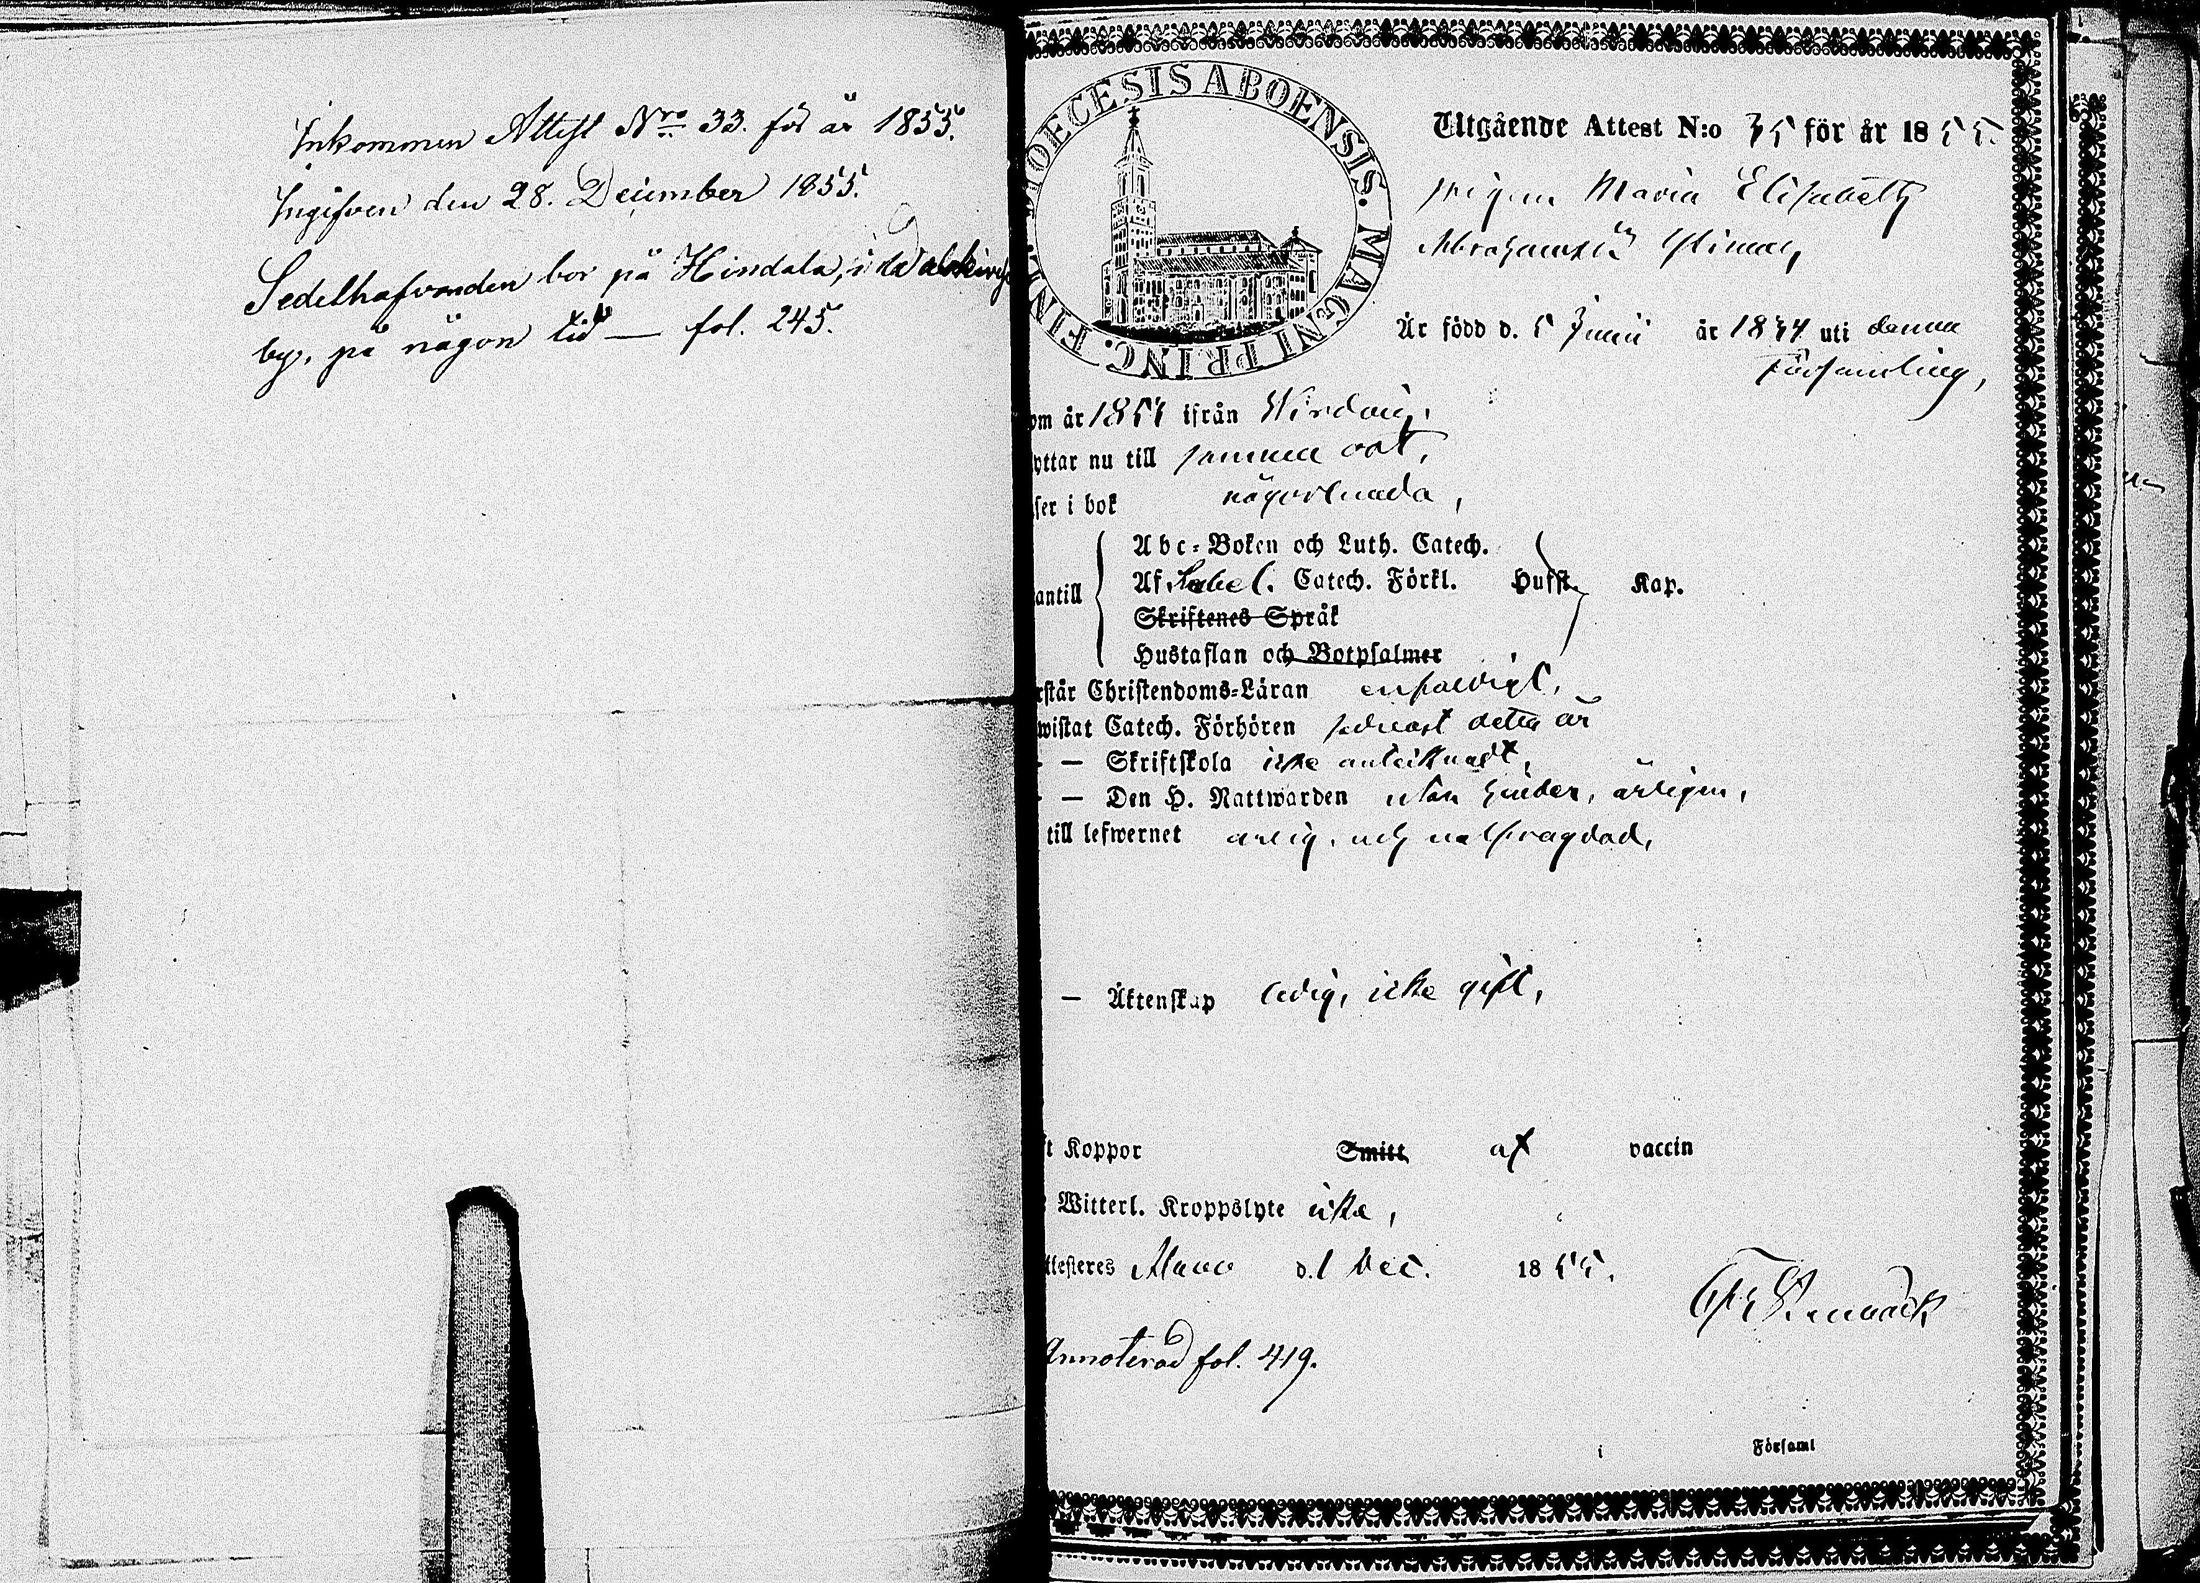 Inkommen Attest Nro 33. för år 1855.
Ingifven den 28. December 1855.
Sedelhafvanden bor på Hindala, i
by, på någon tid — fol. 245.
DIOECESIS ABOENSIS. MAGNI PRINC. FINL.
Utgående Attest N:o 35 för år 1855.
pigan Maria Elisabeth
Abrahamsdr
Är född d. 5 Junii år 1834 uti denna
Församling,
om år 1854 ifrån Wirdois,
yttar nu till samma ort,
ser i bok någorlunda,
antill
Abc-Boken och Luth. Catech.
Af Catech. Förkl. Hufst. Kap.
Skriftenes Språk
Hustaflan och Botpsalmer
rstår Christendoms-Läran enfaldigt,
wistat Catech. Förhören sednast detta år
— Skriftskola icke antecknadt,
— Den H. Nattwarden utan hinder, årligen,
till lefwernet ärlig, och välfrägdad,
— Äktenskap ledig, icke gift,
t Koppor Smitt af vaccin
Witterl. Kroppslyte icke,
ttesteres Alavo d. 1 Dec. 1855.
Annoterad fol. 419.
i Församl